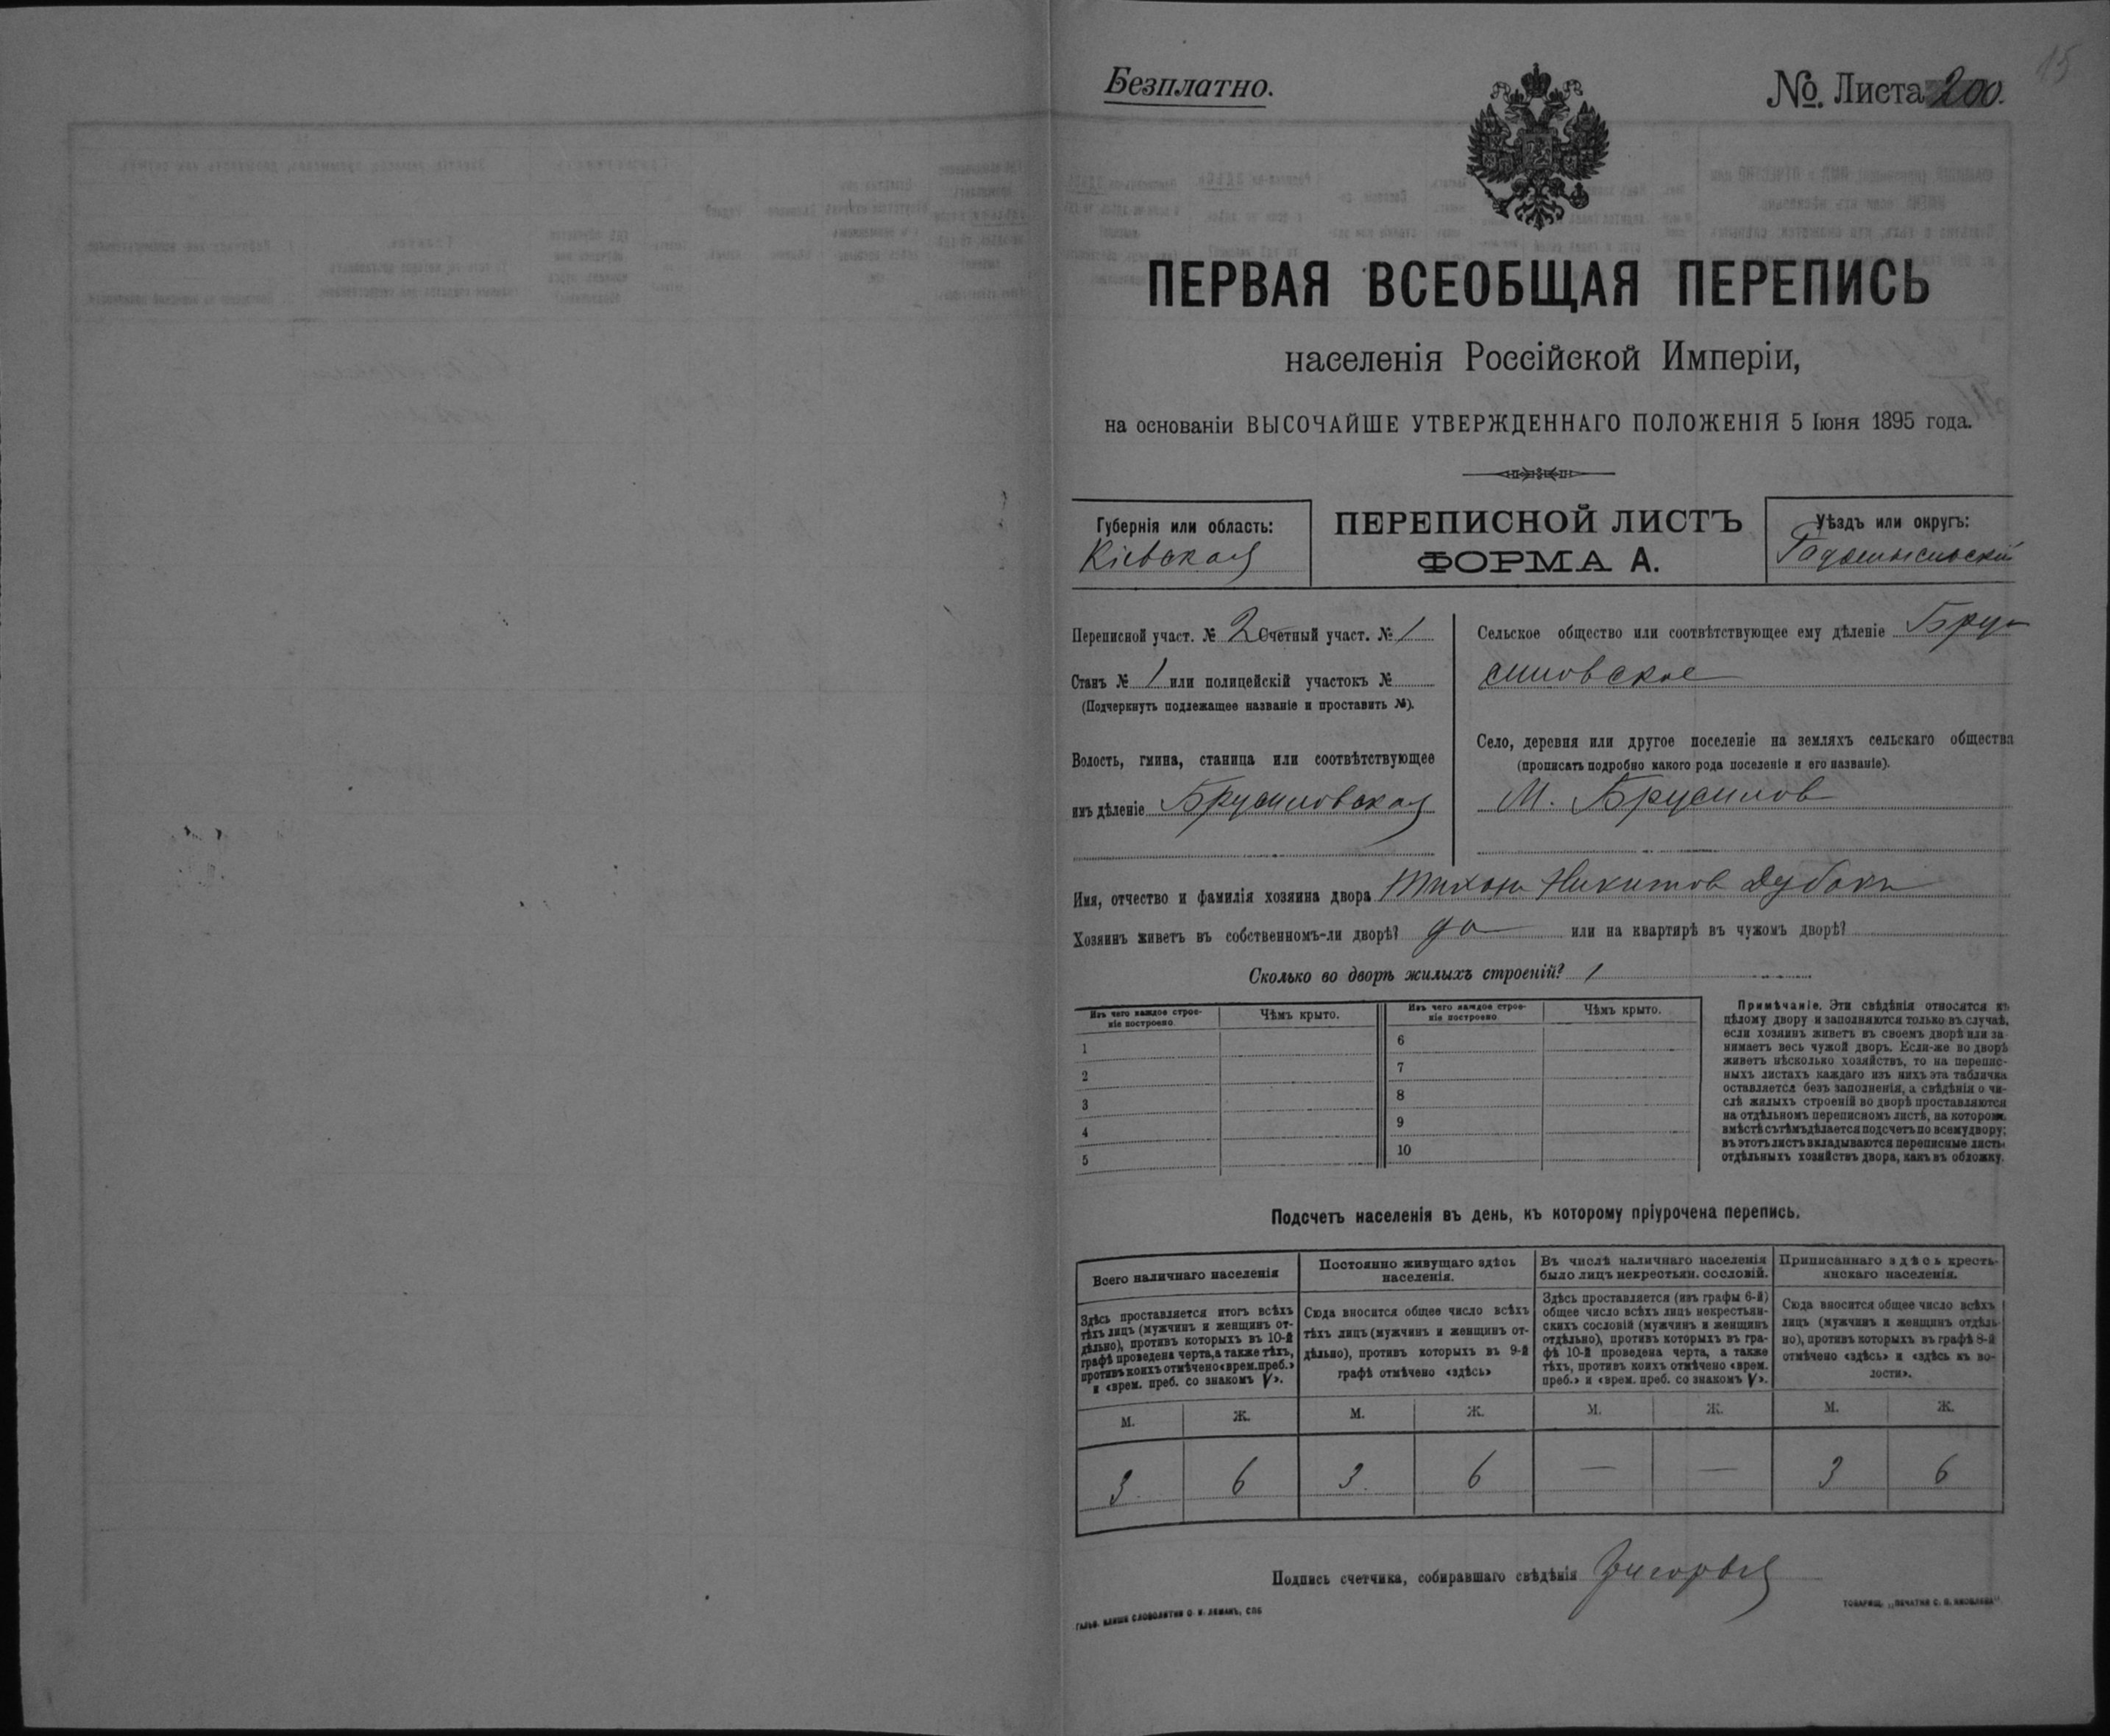 Безплатно.
№. Листа 200.
15
ПЕРВАЯ ВСЕОБЩАЯ ПЕРЕПИСЬ
населенія Россійской Имперіи,
на основаніи ВЫСОЧАЙШЕ УТВЕРЖДЕННАГО ПОЛОЖЕНІЯ 5 Іюня 1895 года.
Губернія или область:
Кіевская
ПЕРЕПИСНОЙ ЛИСТЪ
ФОРМА А.
Уѣздъ или округъ:
Радомысльскій
Переписной участ. № 2 Счетный участ. № 1
Станъ № 1 или полицейскій участокъ №
(Подчеркнуть подлежащее названіе и проставить №).
Волость, гмина, станица или соотвѣтствующее
имъ дѣленіе Брусиловская
Сельское общество или соотвѣтствующее ему дѣленіе Бру-
силовское
Село, деревня или другое поселеніе на земляхъ сельскаго общества
(прописать подробно какого рода поселеніе и его названіе).
М. Брусилов
Имя, отчество и фамилія хозяина двора Тихон Никитов Дубокъ
Хозяинъ живетъ въ собственномъ-ли дворѣ? да или на квартирѣ въ чужомъ дворѣ?
Сколько во дворѣ жилыхъ строеній? 1
Изъ чего каждое строе-
ніе построено
Чѣмъ крыто.
Изъ чего каждое строе-
ніе построено
Чѣмъ крыто.
1
2
3
4
5
6
7
8
9
10
Примѣчаніе. Эти свѣдѣнія относятся къ
цѣлому двору и заполняются только въ случаѣ,
если хозяинъ живетъ въ своемъ дворѣ или за-
нимаетъ весь чужой дворъ. Если-же во дворѣ
живетъ нѣсколько хозяйствъ, то на перепис-
ныхъ листахъ каждаго изъ нихъ эта табличка
оставляется безъ заполненія, а свѣдѣнія о чи-
слѣ жилыхъ строеній во дворѣ проставляются
на отдѣльномъ переписномъ листѣ, на которомъ
вмѣстѣ съ тѣмъ дѣлается подсчетъ по всему двору;
въ этотъ листъ вкладываются переписные листы
отдѣльныхъ хозяйствъ двора, какъ въ обложку.
Подсчетъ населенія въ день, къ которому пріурочена перепись.
Всего наличнаго населенія
Здѣсь проставляется итогъ всѣхъ
тѣхъ лицъ (мужчинъ и женщинъ от-
дѣльно), противъ которыхъ въ 10-й
графѣ проведена черта, а также тѣхъ,
противъ коихъ отмѣчено «врем. преб.»
и «врем. преб. со знакомъ V».
Постоянно живущаго здѣсь
населенія.
Сюда вносится общее число всѣхъ
тѣхъ лицъ (мужчинъ и женщинъ от-
дѣльно), противъ которыхъ въ 9-й
графѣ отмѣчено «здѣсь»
Въ числѣ наличнаго населенія
было лицъ некрестьян. сословій.
Здѣсь проставляется (изъ графы 6-й)
общее число всѣхъ лицъ некрестьян-
скихъ сословій (мужчинъ и женщинъ
отдѣльно), противъ которыхъ въ гра-
фѣ 10-й проведена черта, а также
тѣхъ, противъ коихъ отмѣчено «врем.
преб.» и «врем. преб. со знакомъ V».
Приписаннаго здѣсь кресть-
янскаго населенія.
Сюда вносится общее число всѣхъ
лицъ (мужчинъ и женщинъ отдѣль-
но), противъ которыхъ въ графѣ 8-й
отмѣчено «здѣсь» и «здѣсь къ во-
лости».
М. Ж. М. Ж. М. Ж. М. Ж.
3 6 3 6 — — 3 6
Подпись счетчика, собиравшаго свѣдѣнія
ГАЛЬВ. КЛИШЕ СЛОВОЛИТНИ О. И. ЛЕМАНЪ, СПБ
ТОВАРИЩ. „ПЕЧАТНЯ С. П. ЯКОВЛЕВА"